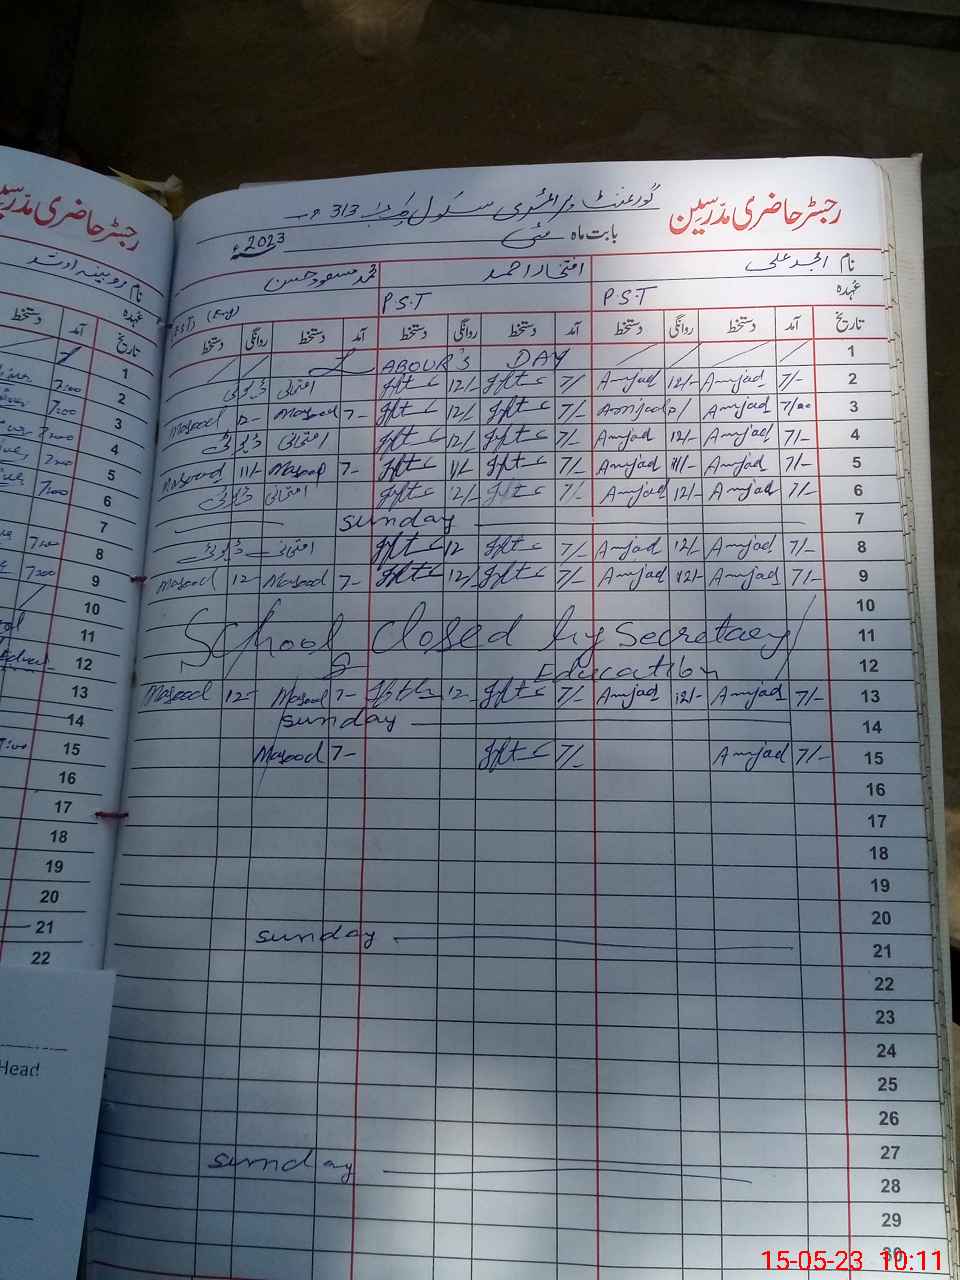 رجسٹر حاضری مدرسین
گورنمنٹ پرائمری سکول چک 313
بابت ماہ مئی 2023ء
نام امجد علی افتخار احمد محمد مسعود حسن
عہدہ P.S.T P.S.T
تاریخ آمد دستخط روانگی دستخط آمد دستخط روانگی دستخط آمد دستخط روانگی دستخط
1 LABOUR'S DAY
2 7/- Amjad 12/- Amjad 7/- 12/- امتحانی ڈیوٹی
3 7/00 Amjad Amjad 7/- 12/ 7- Masood 12- Masood
4 7/- Amjad 12/- Amjad 7/- 12/- امتحانی ڈیوٹی
5 7/- Amjad 11/- Amjad 7/- 11/- 7- Masood 11/- Masood
6 7/- Amjad 12/- Amjad 7/- 12/- امتحانی ڈیوٹی
7 Sunday
8 7/- Amjad 12/- Amjad 7/- 12 امتحانی ڈیوٹی
9 7/- Amjad 12/- Amjad 7/- 12/- 7- Masood 12- Masood
10
11 School closed by Secretary
12 Education
13 7/- Amjad 12/- Amjad 7/- 12- 7- Masood 12- Masood
14 Sunday
15 7/- Amjad 7/- 7- Masood
16
17
18
19
20
21 Sunday
22
23
24
25
26
27
28 Sunday
29
30
رجسٹر حاضری مدرسین
نام روبینہ ارشد
عہدہ
تاریخ آمد دستخط
1
2 7:00
3 7:00
4 7:00
5 7:00
6 7:00
7
8 7:00
9 7:00
10
11
12
13
14
15 7:00
16
17
18
19
20
21
22
Head
15-05-23 10:11